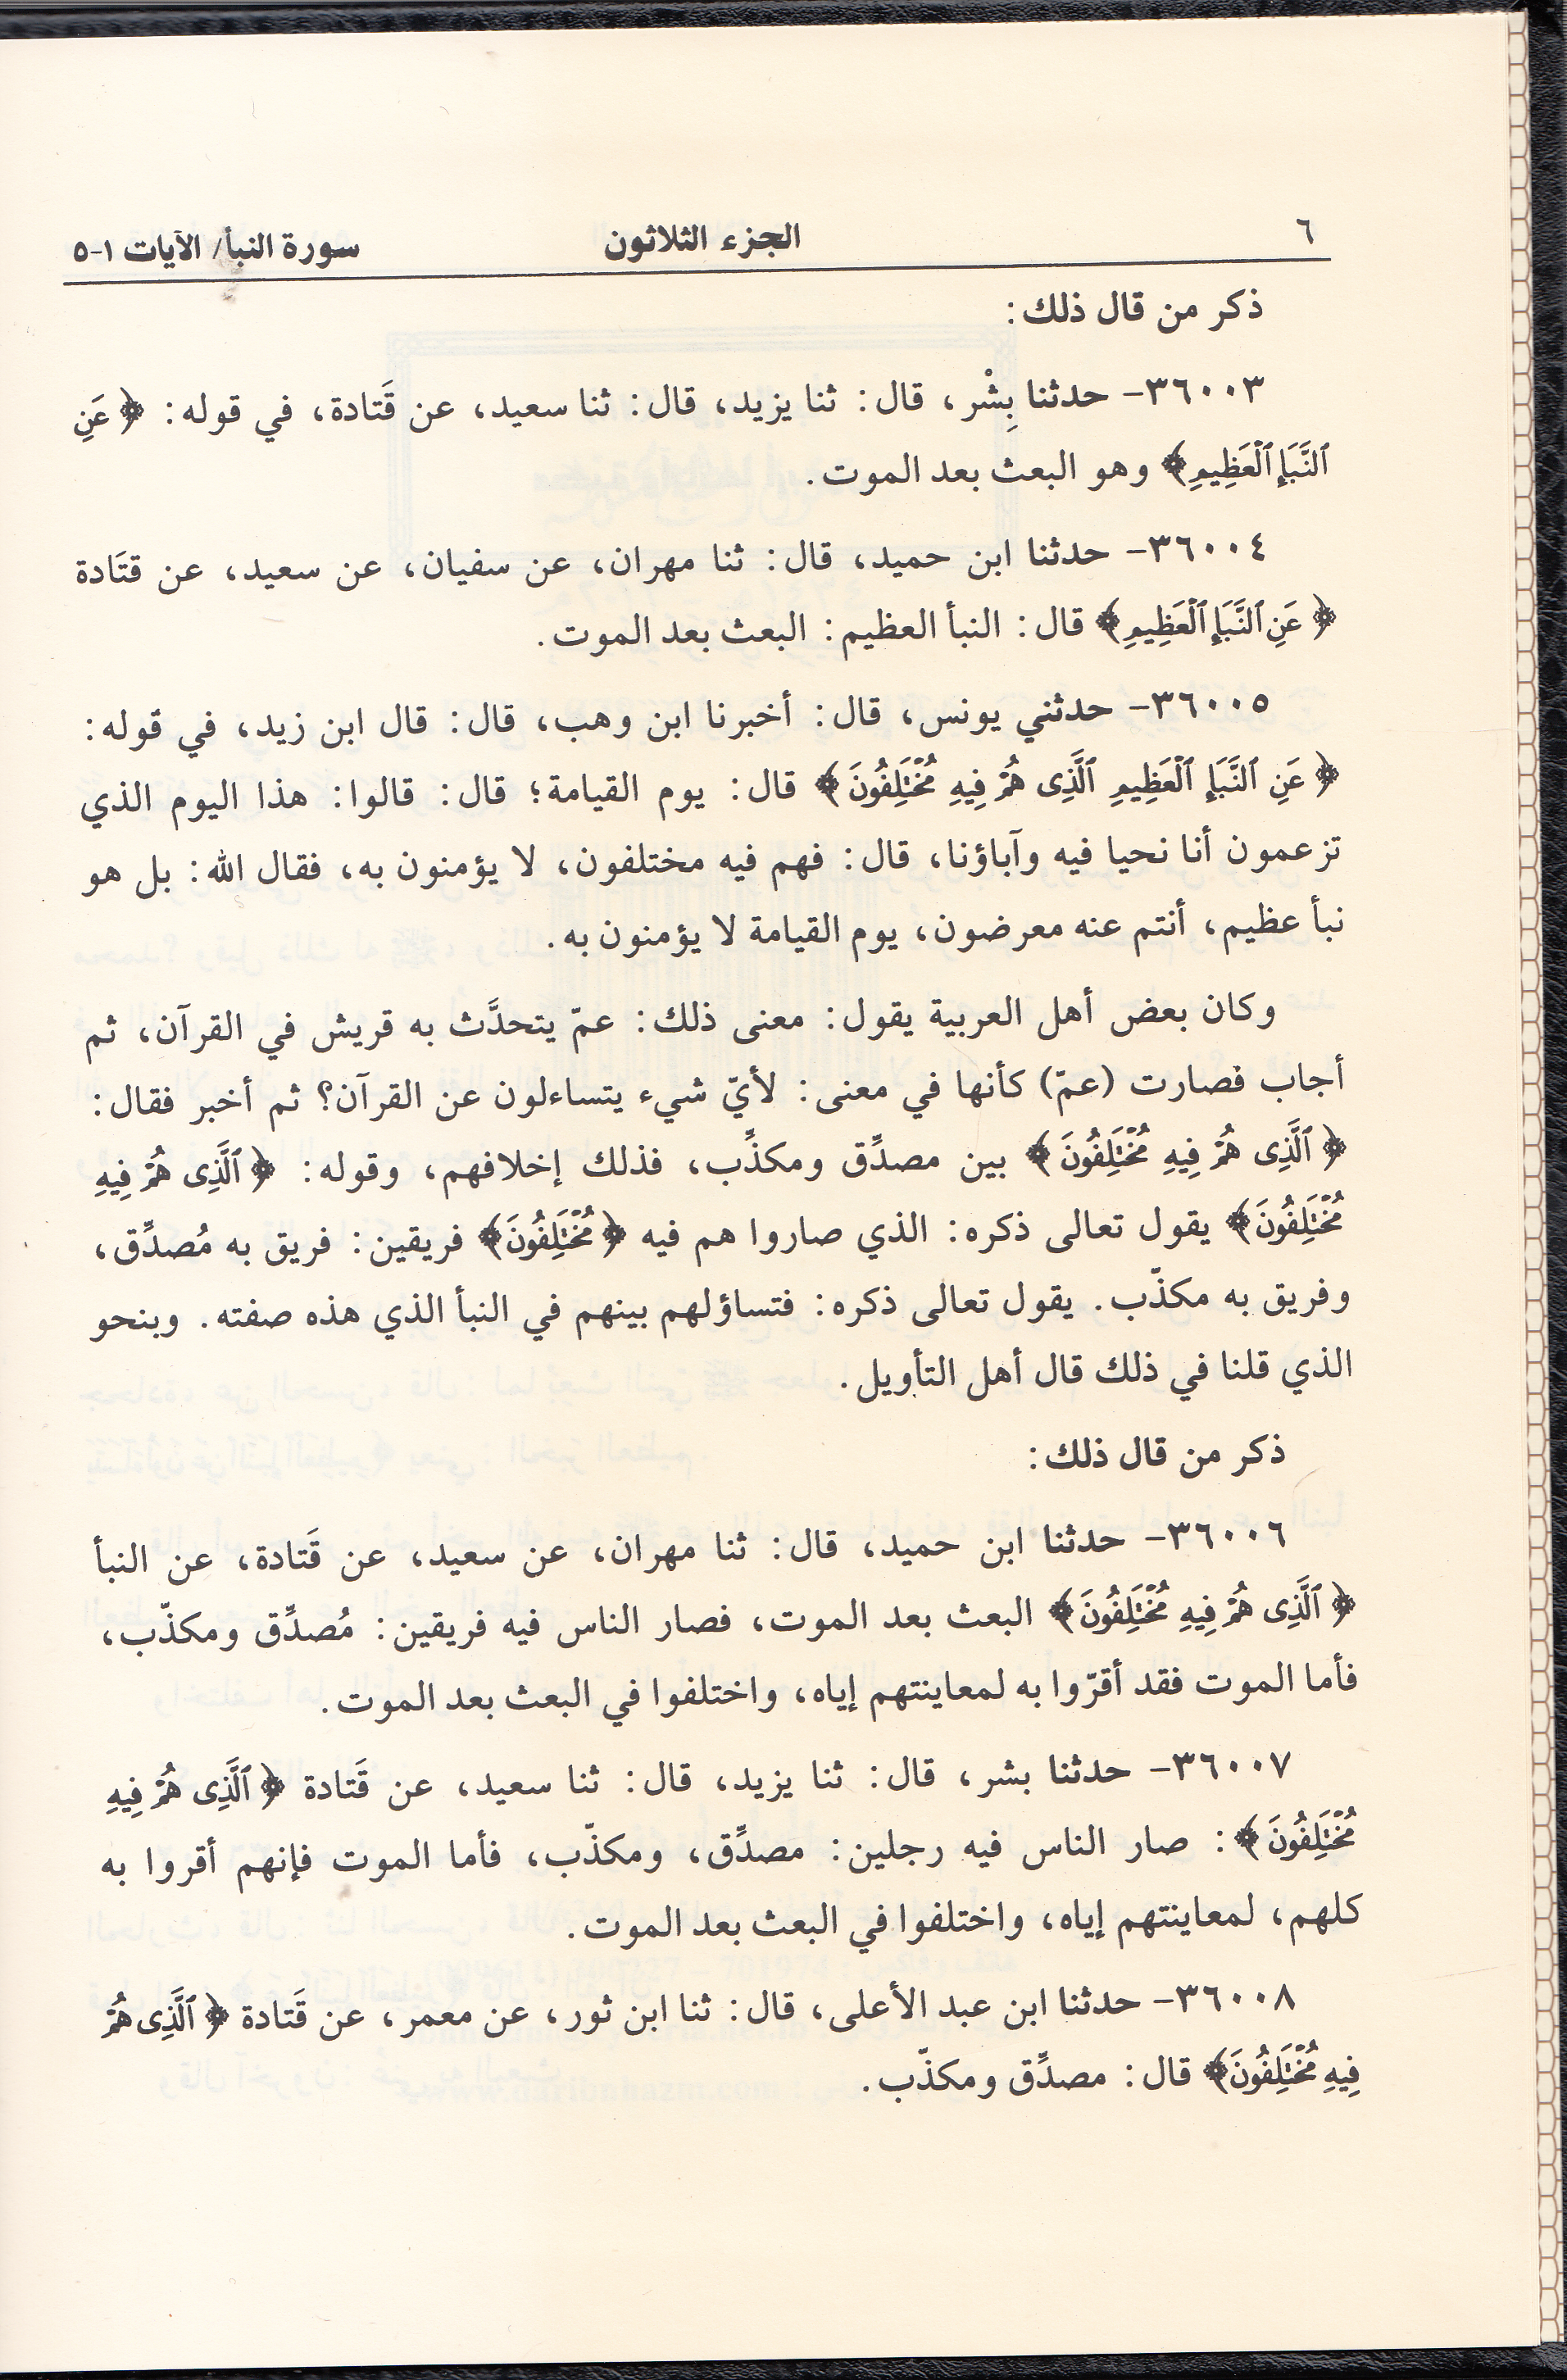 ٦ الجزء الثلاثون سورة النبأ/ الآيات ١-٥
ذكر من قال ذلك:
٣٦٠٠٣- حدثنا بِشْر، قال: ثنا يزيد، قال: ثنا سعيد، عن قَتادة، في قوله: ﴿عَنِ
ٱلنَّبَإِ ٱلْعَظِيمِ﴾ وهو البعث بعد الموت.
٣٦٠٠٤- حدثنا ابن حميد، قال: ثنا مهران، عن سفيان، عن سعيد، عن قتَادة
﴿عَنِ ٱلنَّبَإِ ٱلْعَظِيمِ﴾ قال: النبأ العظيم: البعث بعد الموت.
٣٦٠٠٥- حدثني يونس، قال: أخبرنا ابن وهب، قال: قال ابن زيد، في قوله:
﴿عَنِ ٱلنَّبَإِ ٱلْعَظِيمِ ٱلَّذِى هُمْ فِيهِ مُخْتَلِفُونَ﴾ قال: يوم القيامة؛ قال: قالوا: هذا اليوم الذي
تزعمون أنا نحيا فيه وآباؤنا، قال: فهم فيه مختلفون، لا يؤمنون به، فقال الله: بل هو
نبأ عظيم، أنتم عنه معرضون، يوم القيامة لا يؤمنون به.
وكان بعض أهل العربية يقول: معنى ذلك: عمّ يتحدَّث به قريش في القرآن، ثم
أجاب فصارت (عمّ) كأنها في معنى: لأيّ شيء يتساءلون عن القرآن؟ ثم أخبر فقال:
﴿ٱلَّذِى هُمْ فِيهِ مُخْتَلِفُونَ﴾ بين مصدِّق ومكذِّب، فذلك إخلافهم، وقوله: ﴿ٱلَّذِى هُمْ فِيهِ
مُخْتَلِفُونَ﴾ يقول تعالى ذكره: الذي صاروا هم فيه ﴿مُخْتَلِفُونَ﴾ فريقين: فريق به مُصدِّق،
وفريق به مكذّب. يقول تعالى ذكره: فتساؤلهم بينهم في النبأ الذي هذه صفته. وبنحو
الذي قلنا في ذلك قال أهل التأويل.
ذكر من قال ذلك:
٣٦٠٠٦- حدثنا ابن حميد، قال: ثنا مهران، عن سعيد، عن قَتادة، عن النبأ
﴿ٱلَّذِى هُمْ فِيهِ مُخْتَلِفُونَ﴾ البعث بعد الموت، فصار الناس فيه فريقين: مُصدِّق ومكذّب،
فأما الموت فقد أقرّوا به لمعاينتهم إياه، واختلفوا في البعث بعد الموت.
٣٦٠٠٧- حدثنا بشر، قال: ثنا يزيد، قال: ثنا سعيد، عن قَتادة ﴿ٱلَّذِى هُمْ فِيهِ
مُخْتَلِفُونَ﴾: صار الناس فيه رجلين: مصدِّق، ومكذّب، فأما الموت فإنهم أقروا به
كلهم، لمعاينتهم إياه، واختلفوا في البعث بعد الموت.
٣٦٠٠٨- حدثنا ابن عبد الأعلى، قال: ثنا ابن ثور، عن معمر، عن قَتادة ﴿ٱلَّذِى هُمْ
فِيهِ مُخْتَلِفُونَ﴾ قال: مصدِّق ومكذّب.